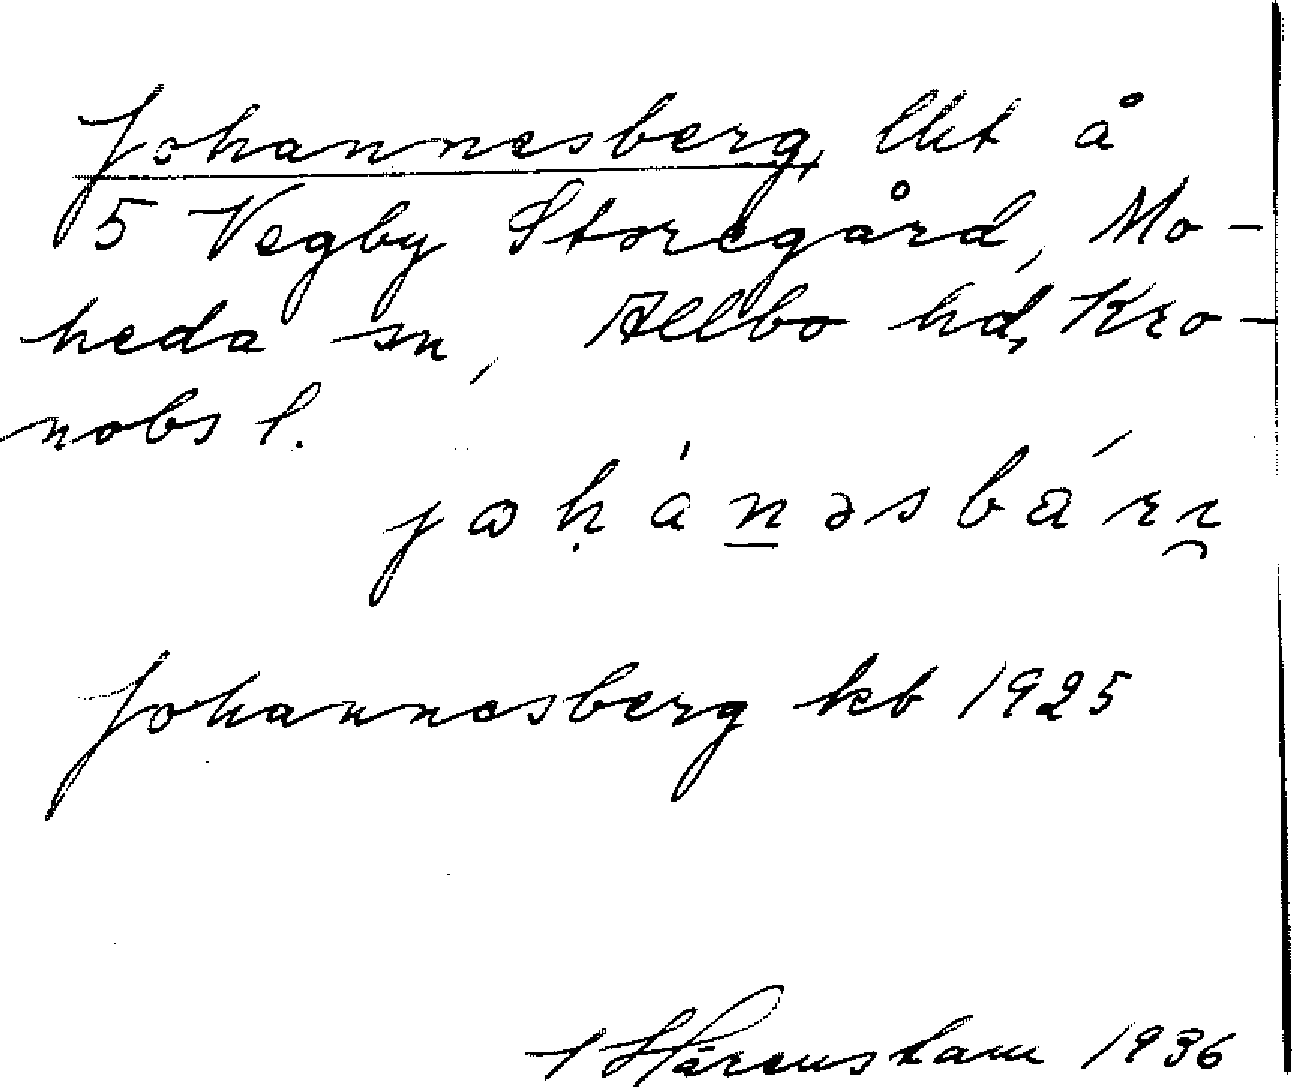 Johannesberg, lht å
5 Vegby Storegård, Mo-
heda sn, Allbo hd, Kro-
nobs l.
Johannesberg kb 1925
Härenstam 1936